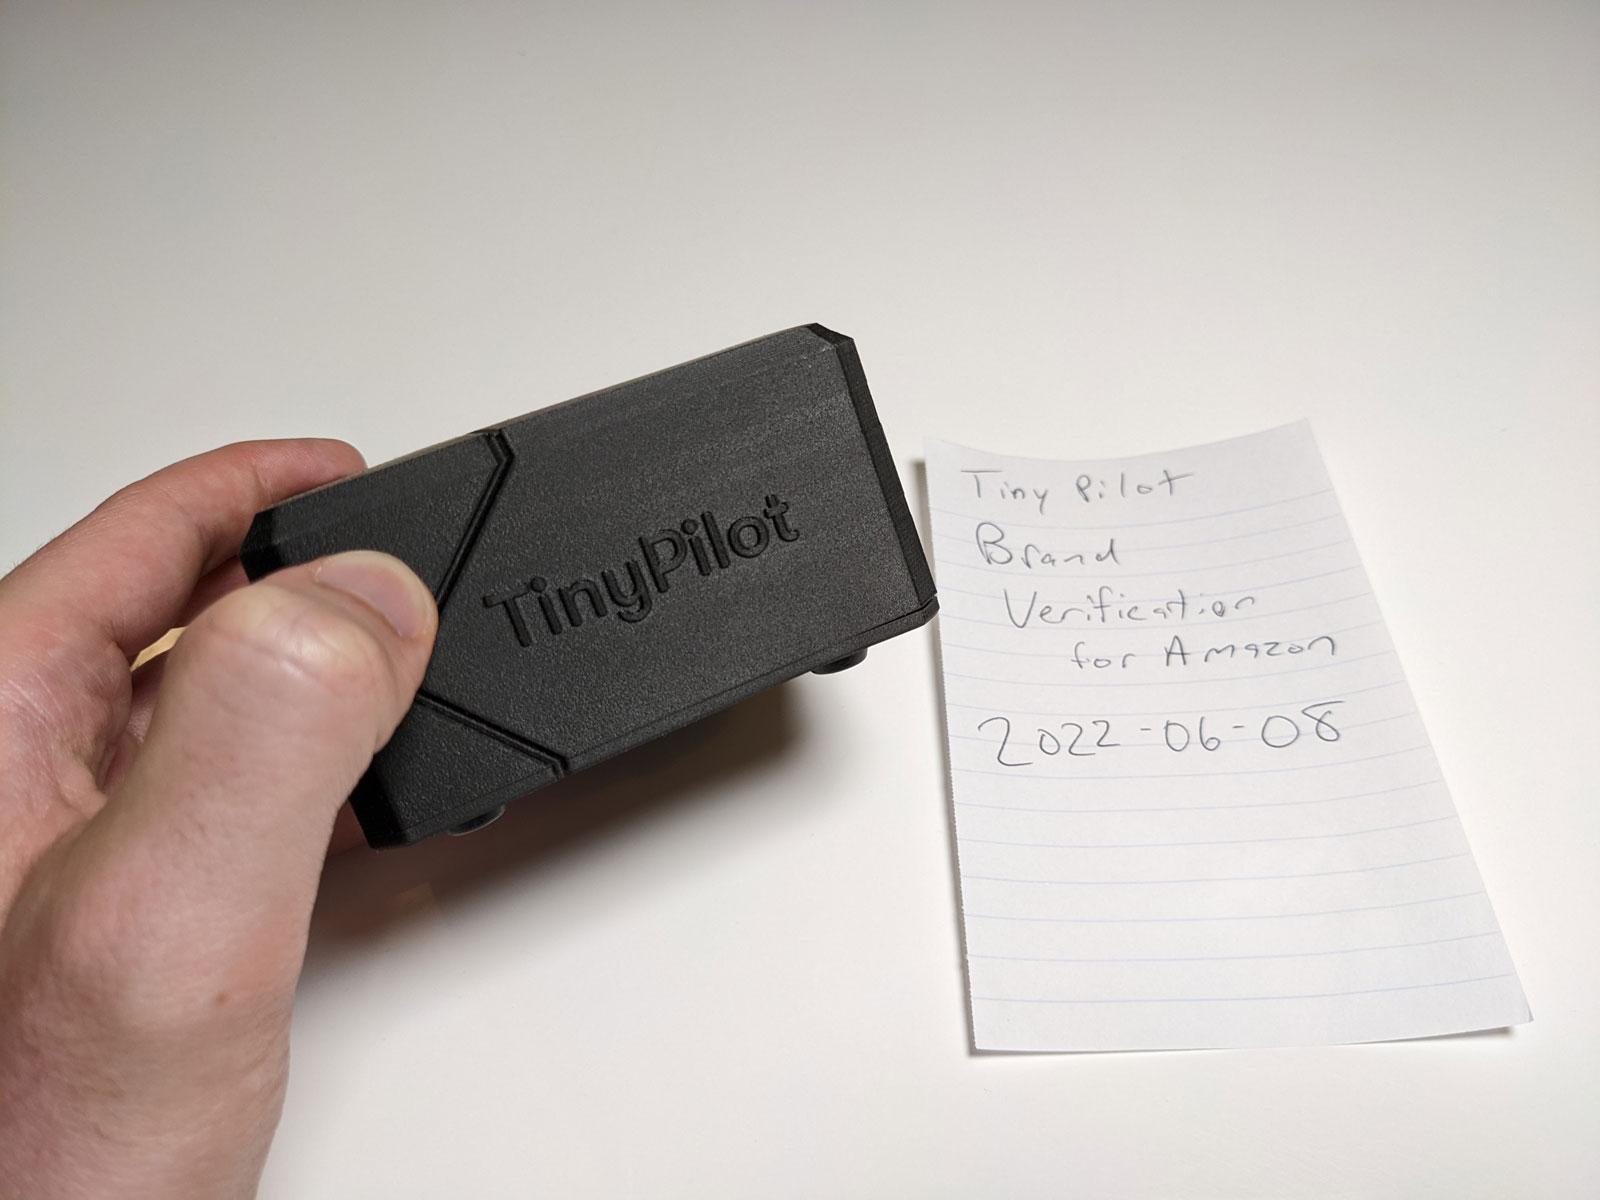 TinyPilot
Tiny Pilot
Brand
Verification
for Amazon
2022-06-08